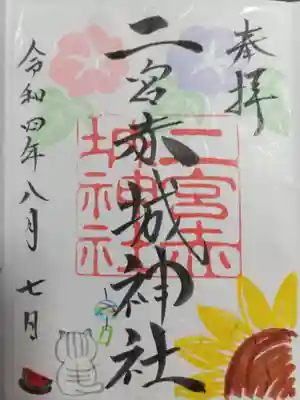 奉拝
二宮赤城神社
二宮赤城神社
令和四年八月七日